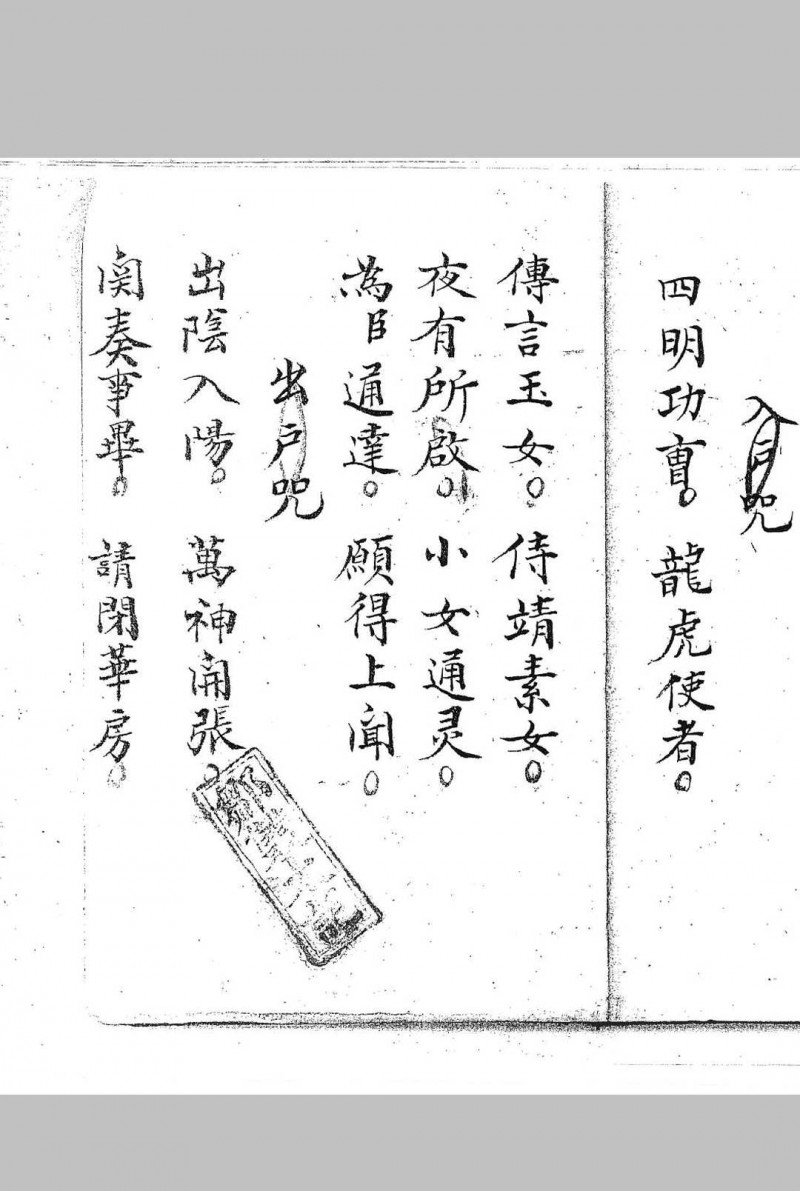 入戶咒
四明功曹。龍虎使者。
傳言玉女。侍靖素女。
夜有所啟。小女通灵。
為臣通達。願得上聞。
出戶咒
出陰入陽。萬神開張。
関奏事畢。請閉華房。